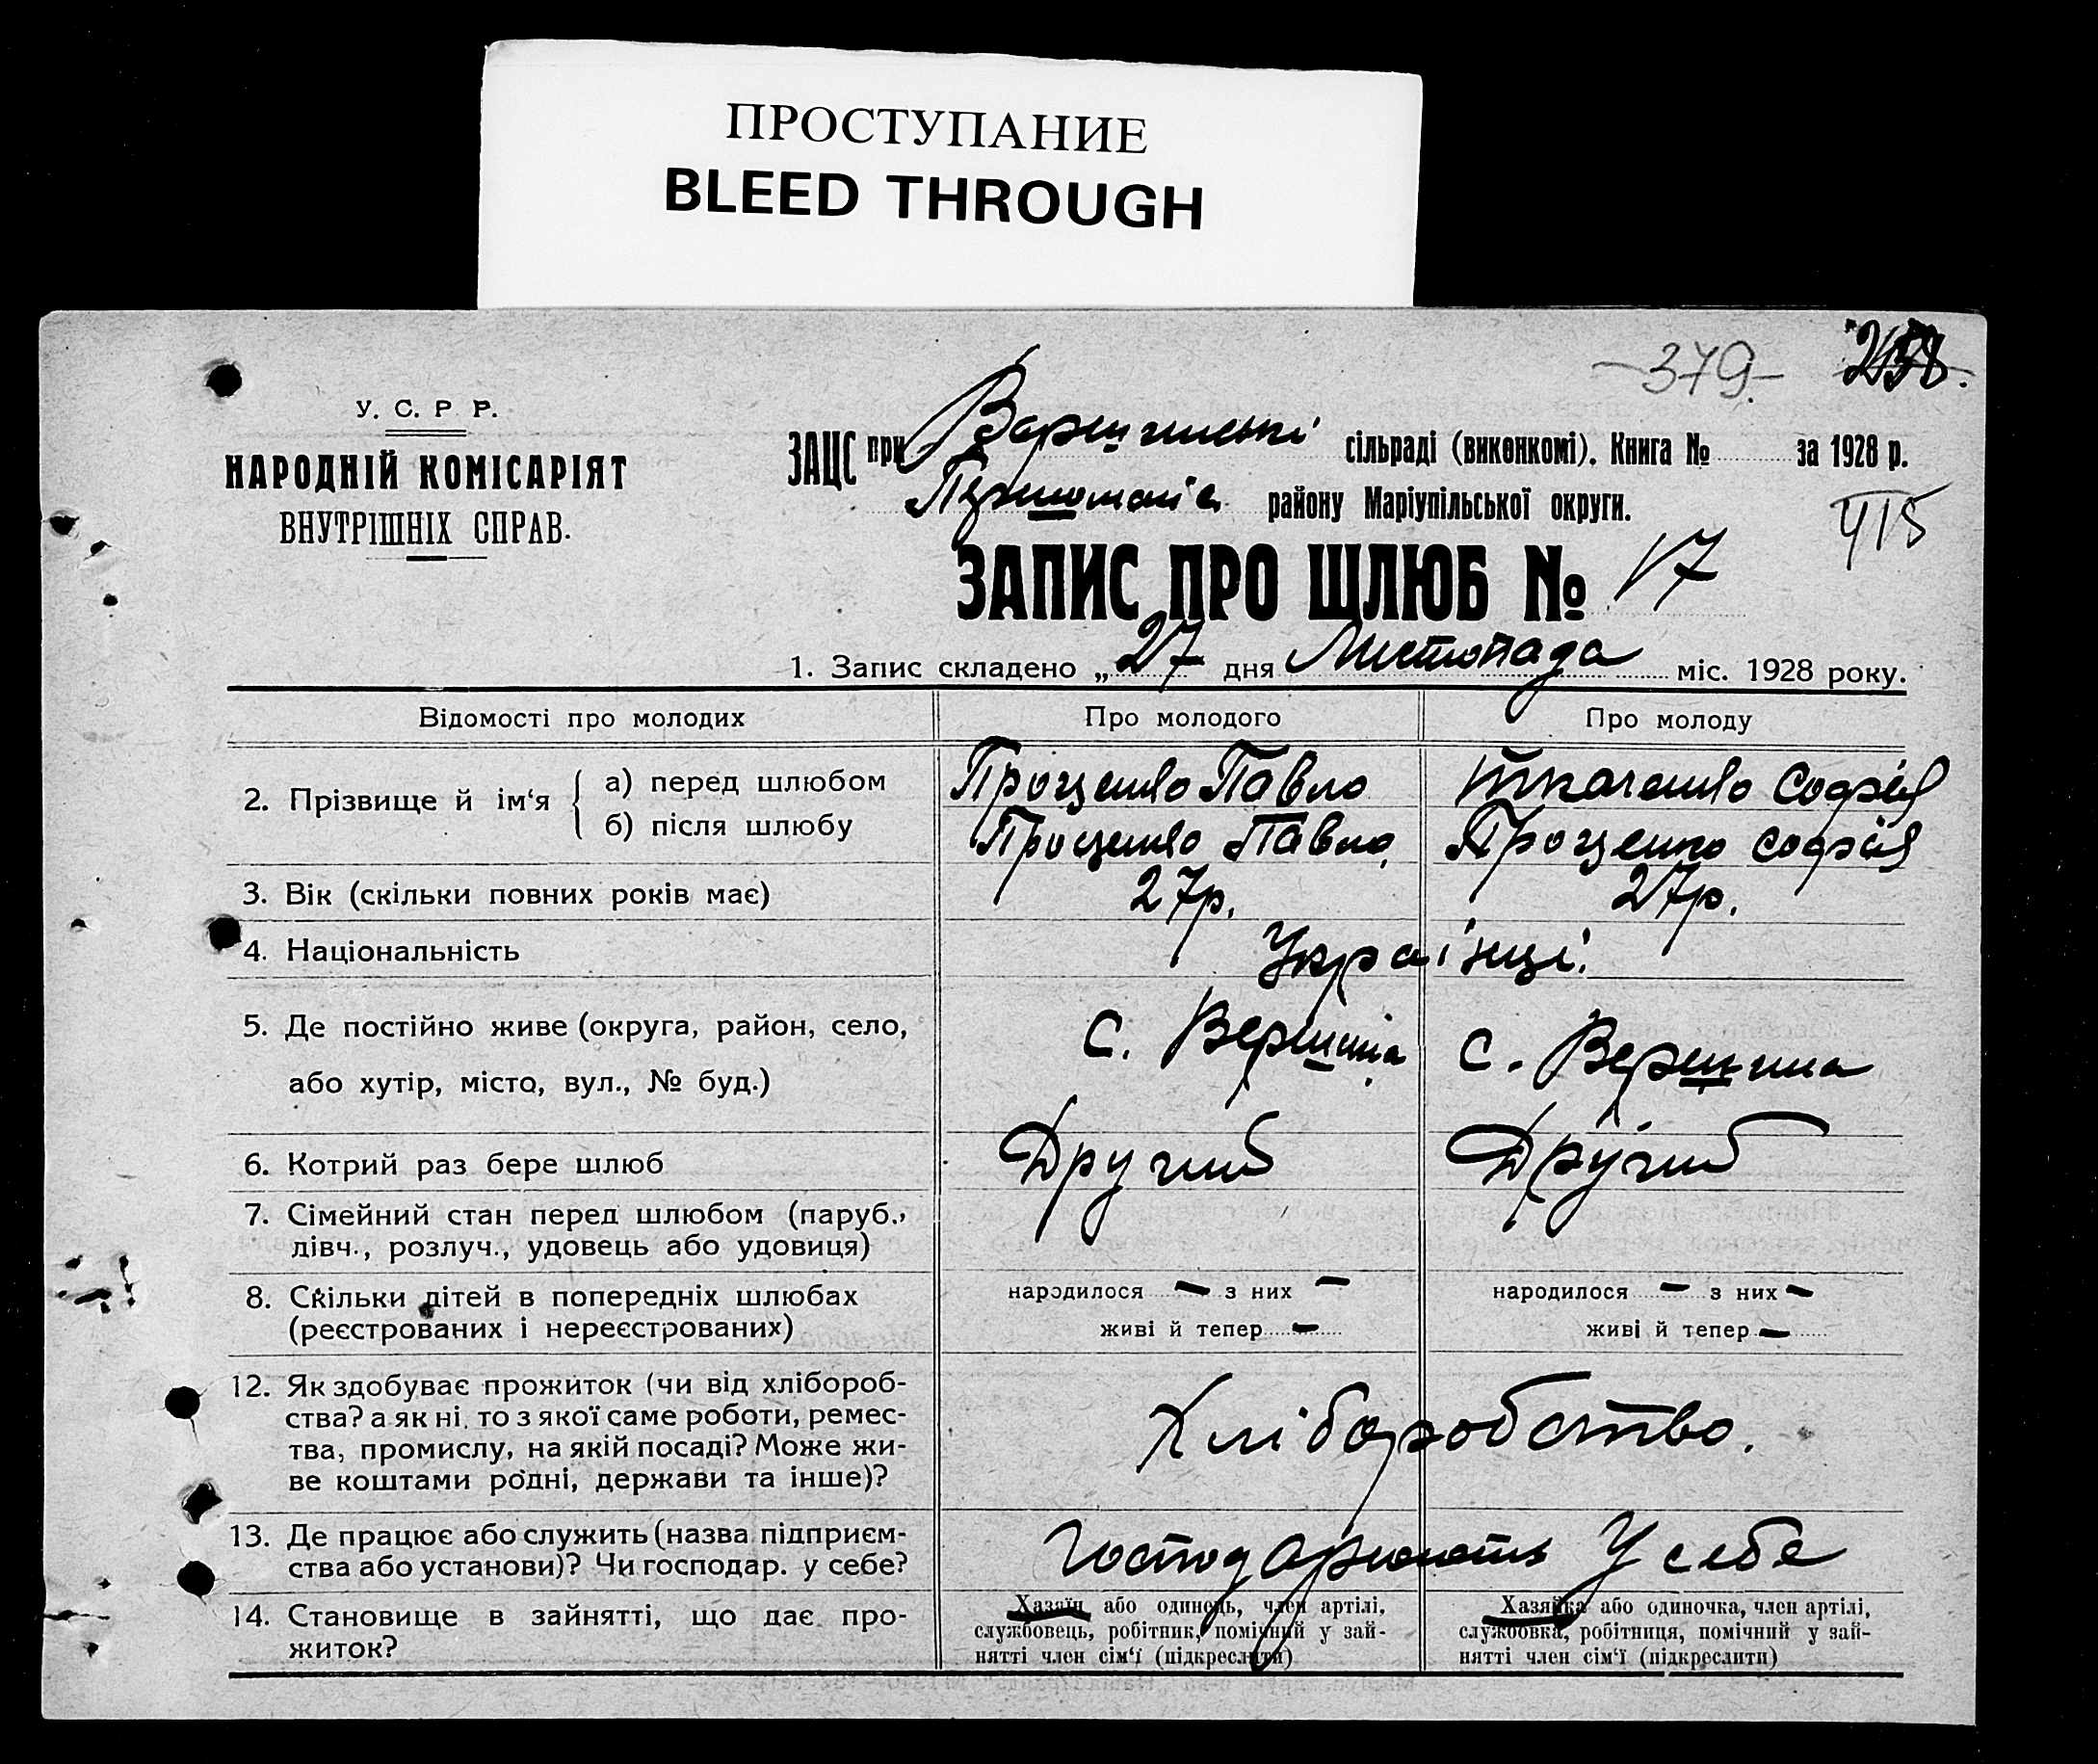 ПРОСТУПАНИЕ
BLEED THROUGH
-379- 
У. С. Р Р.
НАРОДНІЙ КОМІСАРІЯТ
ВНУТРІШНІХ СПРАВ.
ЗАЦС при сільраді (виконкомі). Книга № за 1928 р.
району Маріупільської округи.
415
ЗАПИС ПРО ШЛЮБ № 17
1. Запис складено „27 дня Листопада міс. 1928 року.
Відомості про молодих Про молодого Про молоду
2. Прізвище й ім‘я { а) перед шлюбом Проценко Павло Ткаченко Софія
б) після шлюбу Проценко Павло Проценко Софія
3. Вік (скільки повних років має) 27р. 27р.
4. Національність Украінці.
5. Де постійно живе (округа, район, село, с. Вершина с. Вершина
або хутір, місто, вул., № буд.)
6. Котрий раз бере шлюб Другий Другий
7. Сімейний стан перед шлюбом (паруб.,
дівч., розлуч., удовець або удовиця)
8. Скільки дітей в попередніх шлюбах народилося — з них — народилося — з них —
(реєстрованих і нереєстрованих) живі й тепер — живі й тепер —
12. Як здобуває прожиток (чи від хлібороб-
ства? а як ні, то з якої саме роботи, ремес- Хліборобство.
тва, промислу, на якій посаді? Може жи-
ве коштами родні, держави та інше)?
13. Де працює або служить (назва підприєм- Господарюють У себе
ства або установи)? Чи господар. у себе?
14. Становище в зайнятті, що дає про- Хазяїн або одинець, член артілі, Хазяйка або одиночка, член артілі,
житок? службовець, робітник, помічний у зай- службовка, робітниця, помічний у зай-
нятті член сім‘ї (підкреслити) нятті член сім‘ї (підкреслити)